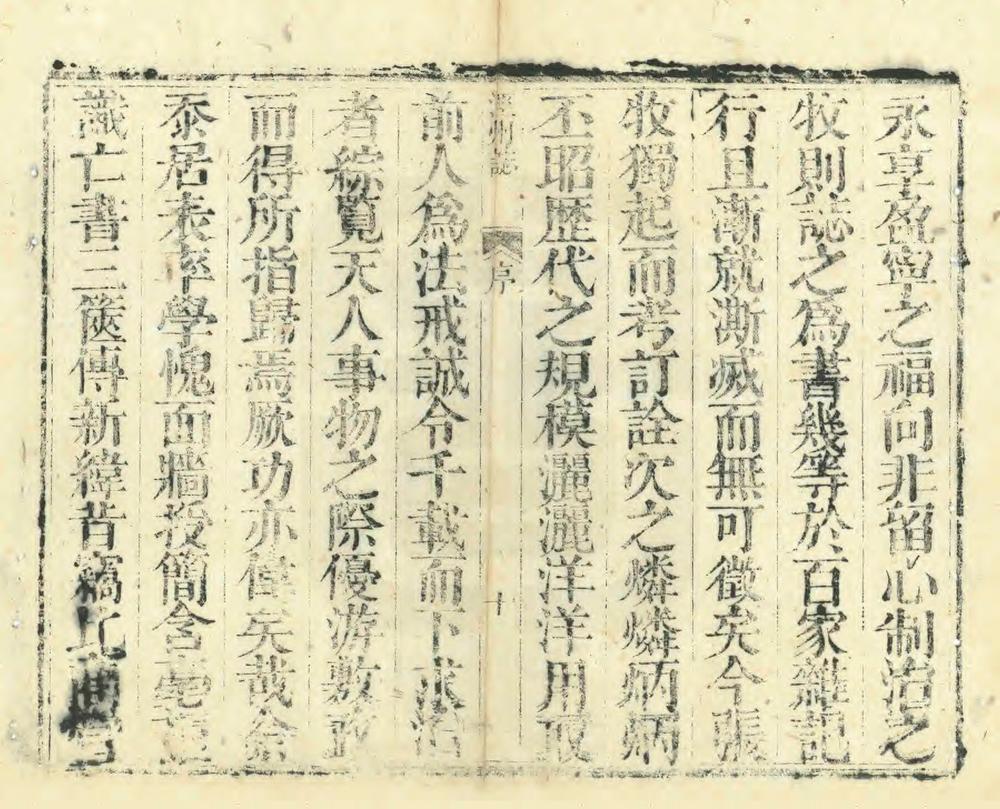 永享盈寧之福向非留心制治之
牧則誌之為書幾等於百家雜記
行且漸就澌滅而無可徵矣今張
牧獨起而考訂詮次之燐燐炳炳
丕昭歷代之規模灑灑洋洋用取
州誌
序
十
前人爲法戒誠令千載而下求治
者綜覽天人事物之際優游敷政
而得所指歸焉厥功亦偉矣哉余
忝居表率學愧面牆投簡含毫
識亡書三篋傳新緯昔